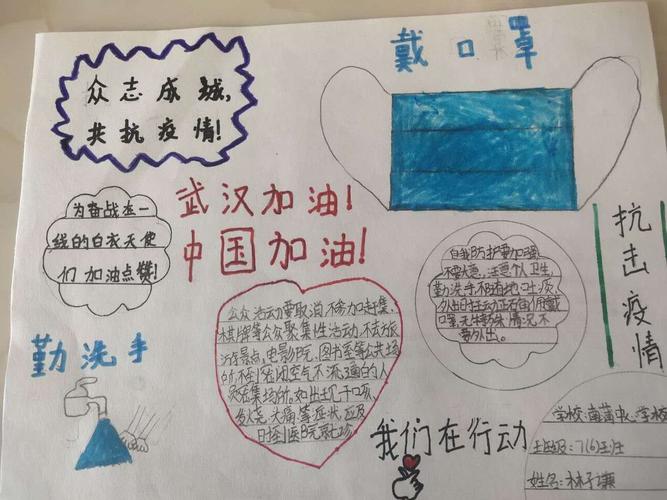 众志成城,
共抗疫情!
戴口罩
武汉加油!
中国加油!
为奋战在一
线的白衣天使
们加油点赞!
自我防护要加强
不要大意,注意个人卫生,
勤洗手不随地吐痰
外出时主动正确佩戴
口罩,无特殊情况不
要外出。
抗击疫情
勤洗手
公众活动要取消不参加赶集,
棋牌等公众聚集性活动,不去旅
游景点,电影院,图书系等公共场
所,不到密闭,空气不流通的人
员密集场所。如出现干咳,
发烧,头痛等症状,应及
时到医院就诊
我们在行动
学校:南蒲中心学校
班级:7(6)班
姓名:林子